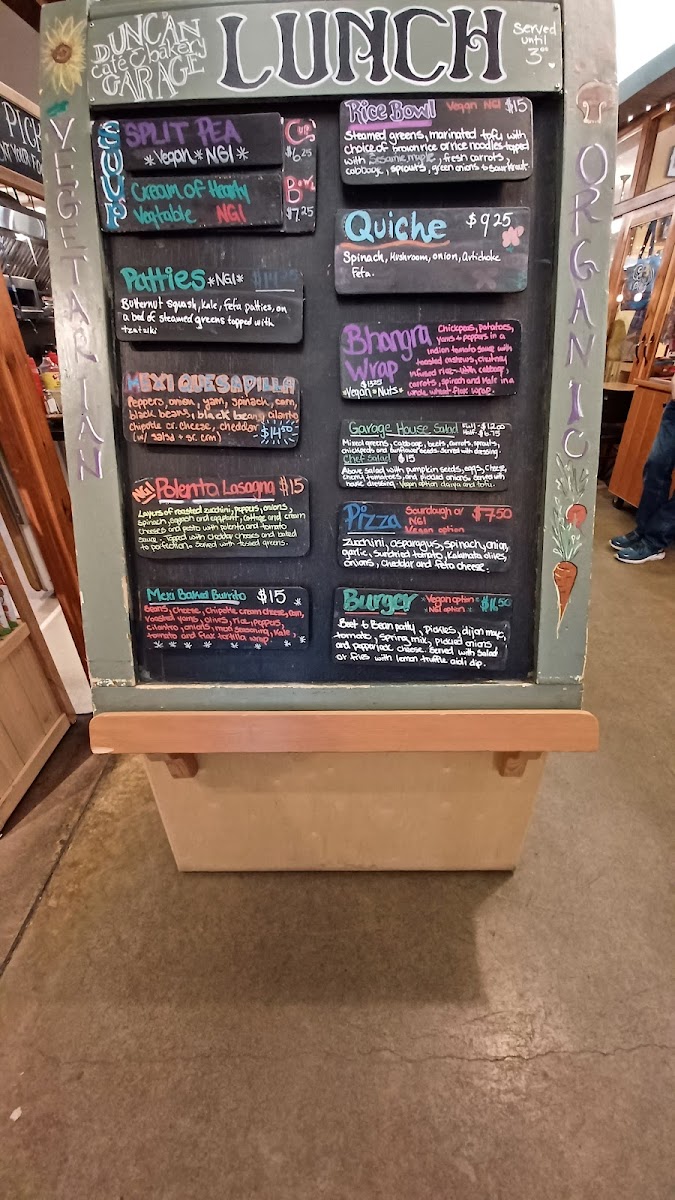 DUNCAN
café & bakery
GARAGE
LUNCH
served
until
3:00
VEGETARIAN
ORGANIC
SOUP
SPLIT PEA
*Vegan*NGI*
Cream of Hearty
Vegtable NGI
Cup
$6.25
Bowl
$7.25
Patties *NGI*
Butternut squash, Kale, Feta patties, on
a bed of steamed greens topped with
tzatziki
MEXI QUESADILLA
Peppers, onion, yam, spinach, corn,
black beans, black bean cilantro
chipotle cr. cheese, cheddar
(w/ salsa + sr crm)
$14.50
NGI Polenta Lasagna $15
Layers of roasted zucchini, peppers, onions,
spinach, squash and eggplant, cottage and cream
cheeses and pesto with polenta and tomato
sauce. Topped with cheddar cheese and baked
to perfection. Served with tossed greens.
Mexi Baked Burrito $15
Beans, Cheese, Chipotle cream cheese, corn,
roasted yams, olives, rice, peppers,
cilantro, onions, mexi seasoning, Kale,
tomato and flax tortilla wrap
Rice Bowl Vegan NGI $15
Steamed greens, marinated tofu with
choice of brown rice or rice noodles topped
with Sesame maple, fresh carrots,
cabbage, sprouts, green onions + sauerkraut.
Quiche $9.25
Spinach, Mushroom, onion, Artichoke
Feta.
Bhangra
Wrap
*Vegan*Nuts*
Chickpeas, potatoes,
yams + peppers in a
indian tomato sauce with
toasted cashews, chutney
infused rice with cabbage
carrots, spinach and kale in a
whole wheat flax wrap.
Garage House Salad Full-$12.00
Half-$6.75
Mixed greens, cabbage, beets, carrots, sprouts,
chickpeas and sunflower seeds. Served with dressing.
Chef Salad $15
Above salad with pumpkin seeds, eggs, cheese,
cherry tomatoes, and pickled onions. Served with
house dressing. Vegan option daiya and tofu.
Pizza Sourdough or $7.50
NGI
Vegan option
Zucchini, asparagus, spinach, onion,
garlic, Sundried tomato, Kalamata olives,
onions, cheddar and feta cheese.
Burger *Vegan option*
*NGI option*
Beet & Bean patty, pickles, dijon mayo,
tomato, spring mix, pickled onions
and pepperjack cheese. Served with Salad
or fries with lemon truffle aioli dip.